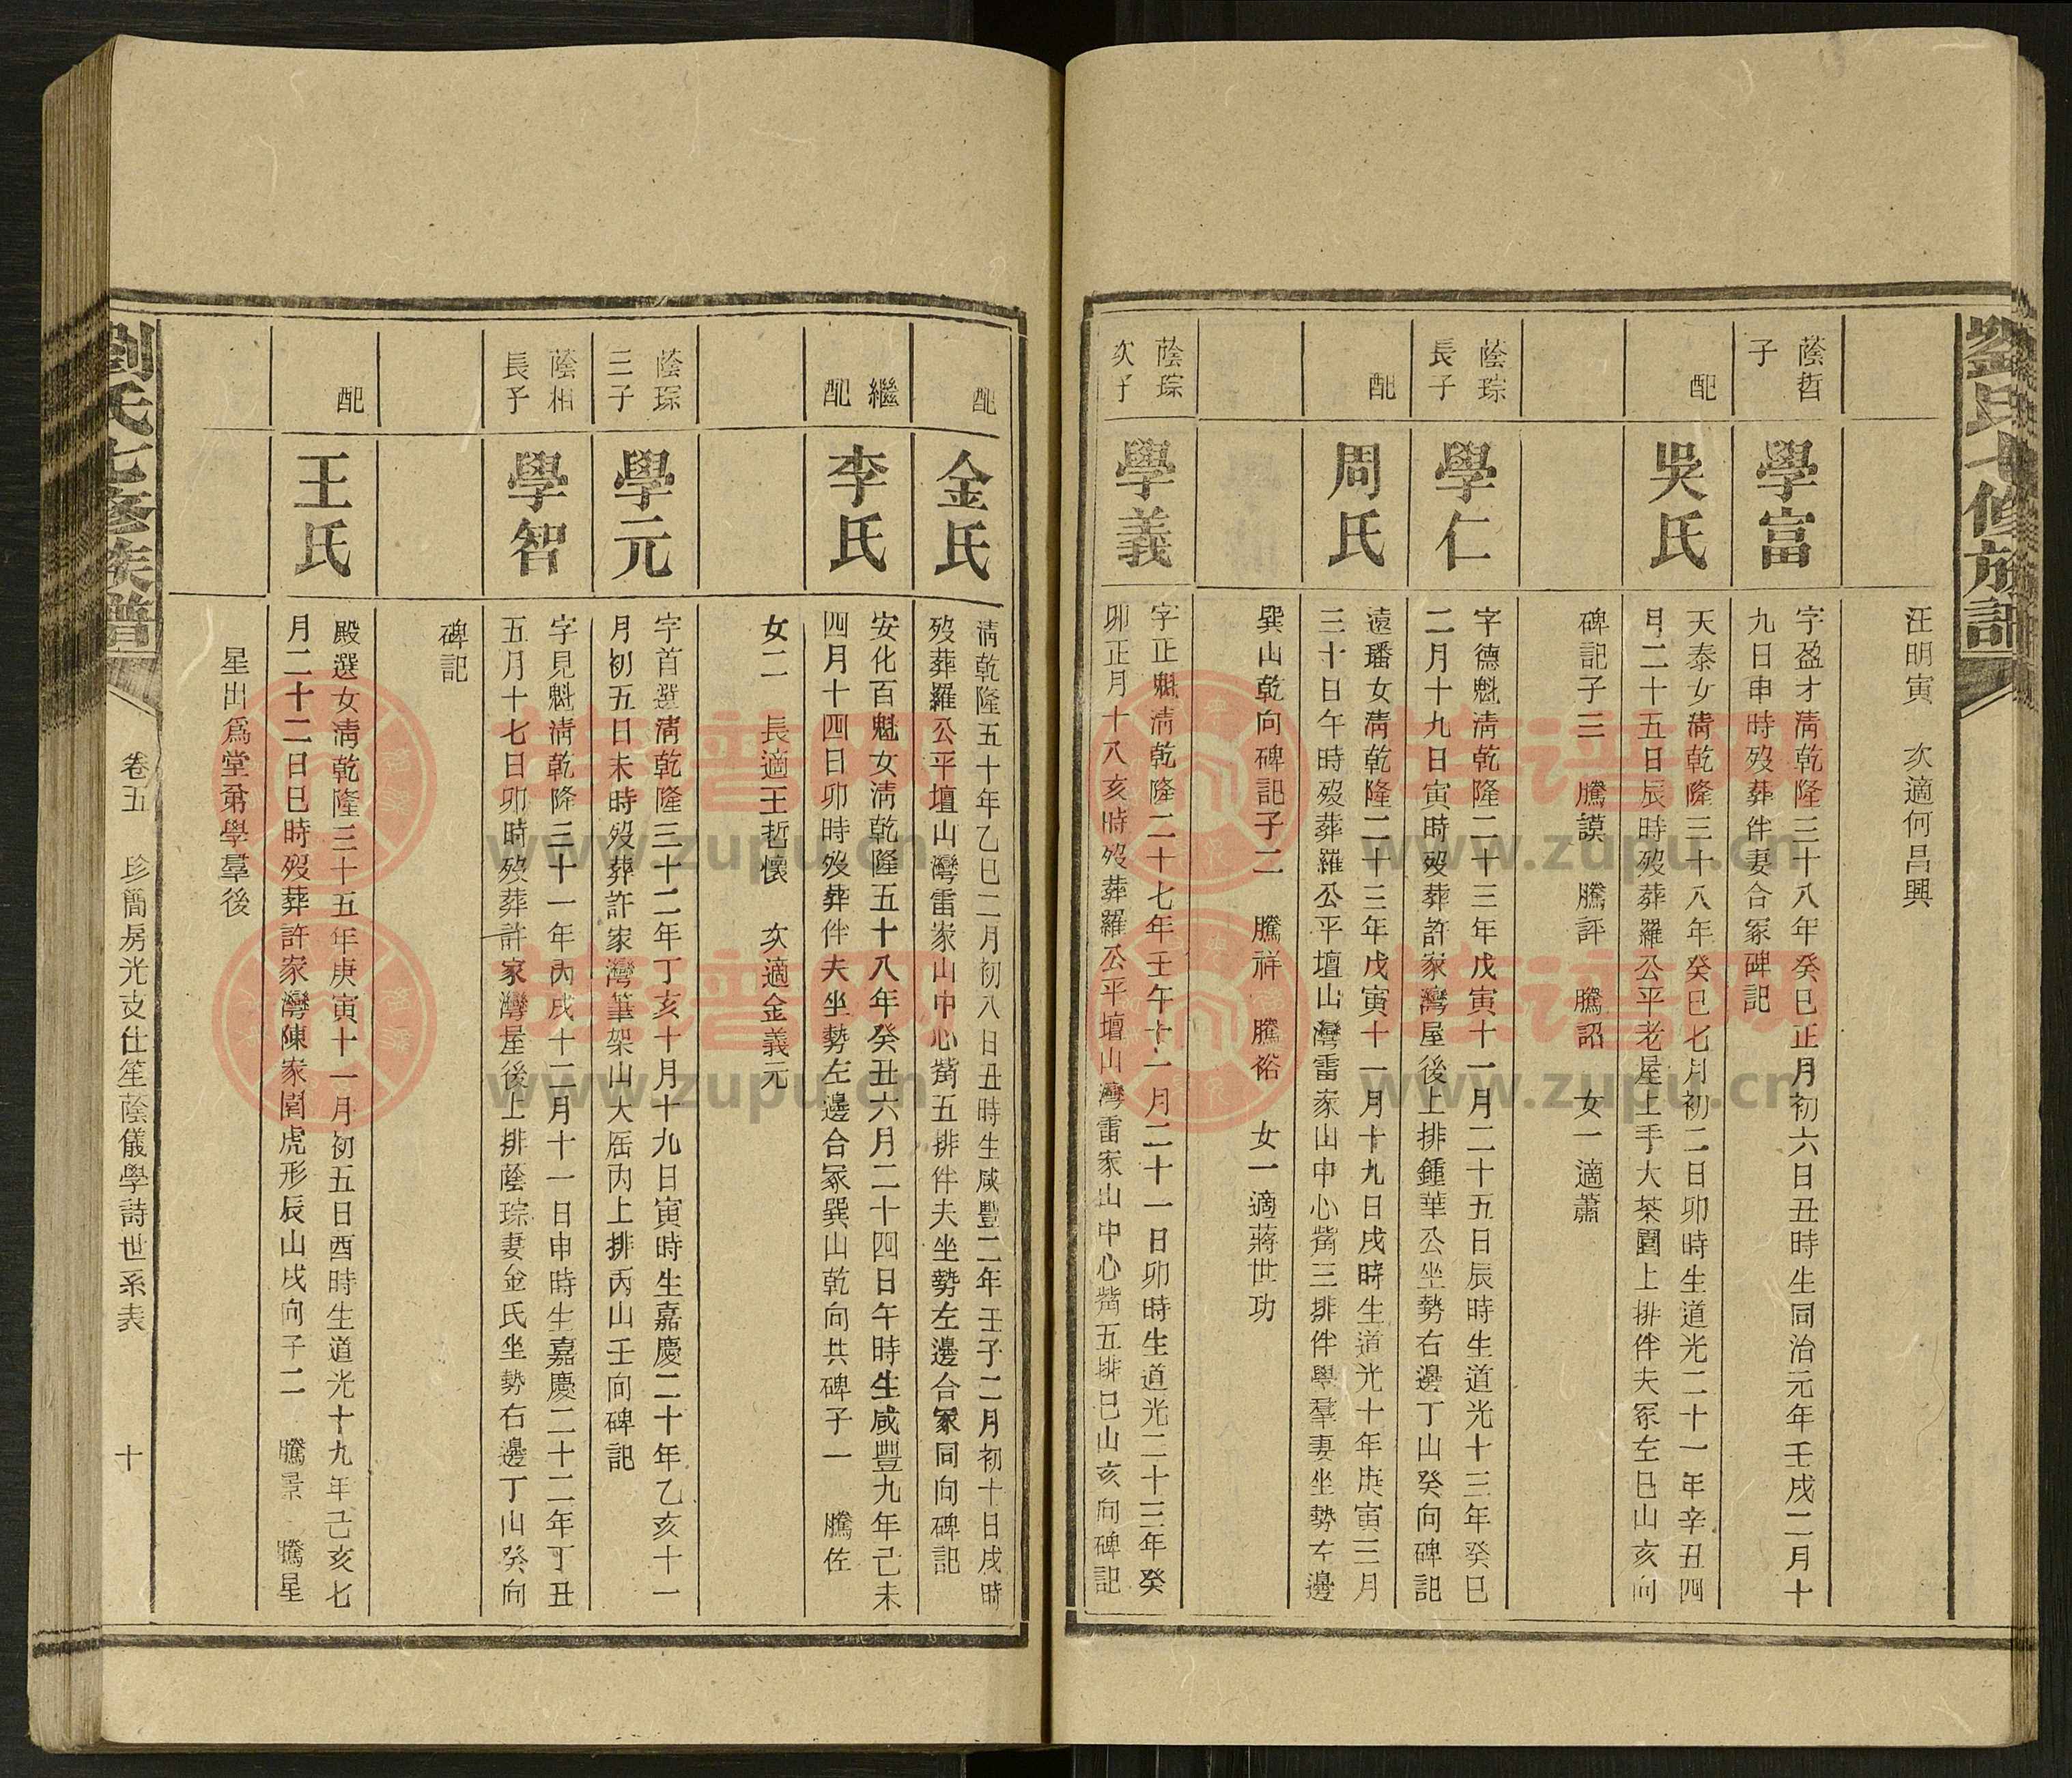 劉氏七修族譜
汪明寅　次適何昌興
蔭哲
子
學富
字盈才清乾隆三十八年癸巳正月初六日丑時生同治元年壬戌二月十
九日申時歿葬伴妻合冢碑記
配
吳氏
天泰女清乾隆三十八年癸巳七月初二日卯時生道光二十一年辛丑四
月二十五日辰時歿葬羅公平老屋上手大茶園上排伴夫冢左巳山亥向
碑記子三　騰謨　騰評　騰詔　女一適蕭
蔭琮
長子
學仁
字德魁清乾隆二十三年戊寅十一月二十五日辰時生道光十三年癸巳
二月十九日寅時歿葬許家灣屋後上排鍾華公坐勢右邊丁山癸向碑記
配
周氏
遠璠女清乾隆二十三年戊寅十一月十九日戌時生道光十年庚寅三月
三十日午時歿葬羅公平壇山灣雷家山中心嘴三排伴學羣妻坐勢左邊
巽山乾向碑記子二　騰祥　騰裕　女一適蔣世功
蔭琮
次子
學義
字正魁清乾隆二十七年壬午十一月二十一日卯時生道光二十三年癸
卯正月十八亥時歿葬羅公平壇山灣雷家山中心嘴五排巳山亥向碑記
配
金氏
清乾隆五十年乙巳二月初八日丑時生咸豐二年壬子二月初十日戌時
歿葬羅公平壇山灣雷家山中心嘴五排伴夫坐勢左邊合冢同向碑記
繼
配
李氏
安化百魁女清乾隆五十八年癸丑六月二十四日午時生咸豐九年己未
四月十四日卯時歿葬伴夫坐勢左邊合冢巽山乾向共碑子一　騰佐
女二　長適王哲懷　次適金義元
蔭琮
三子
學元
字首選清乾隆三十二年丁亥十月十九日寅時生嘉慶二十年乙亥十一
月初五日未時歿葬許家灣筆架山大厝內上排丙山壬向碑記
蔭相
長子
學智
字見魁清乾隆三十一年丙戌十二月十一日申時生嘉慶二十二年丁丑
五月十七日卯時歿葬許家灣屋後上排蔭琮妻金氏坐勢右邊丁山癸向
碑記
配
王氏
殿選女清乾隆三十五年庚寅十一月初五日酉時生道光十九年己亥七
月二十二日巳時歿葬許家灣陳家園虎形辰山戌向子二　騰景　騰星
星出為堂弟學羣後
劉氏七修族譜
卷五　珍簡房光支仕笙蔭儀學詩世系表　十
www.zupu.cn
www.zupu.cn
www.zupu.cn
www.zupu.cn